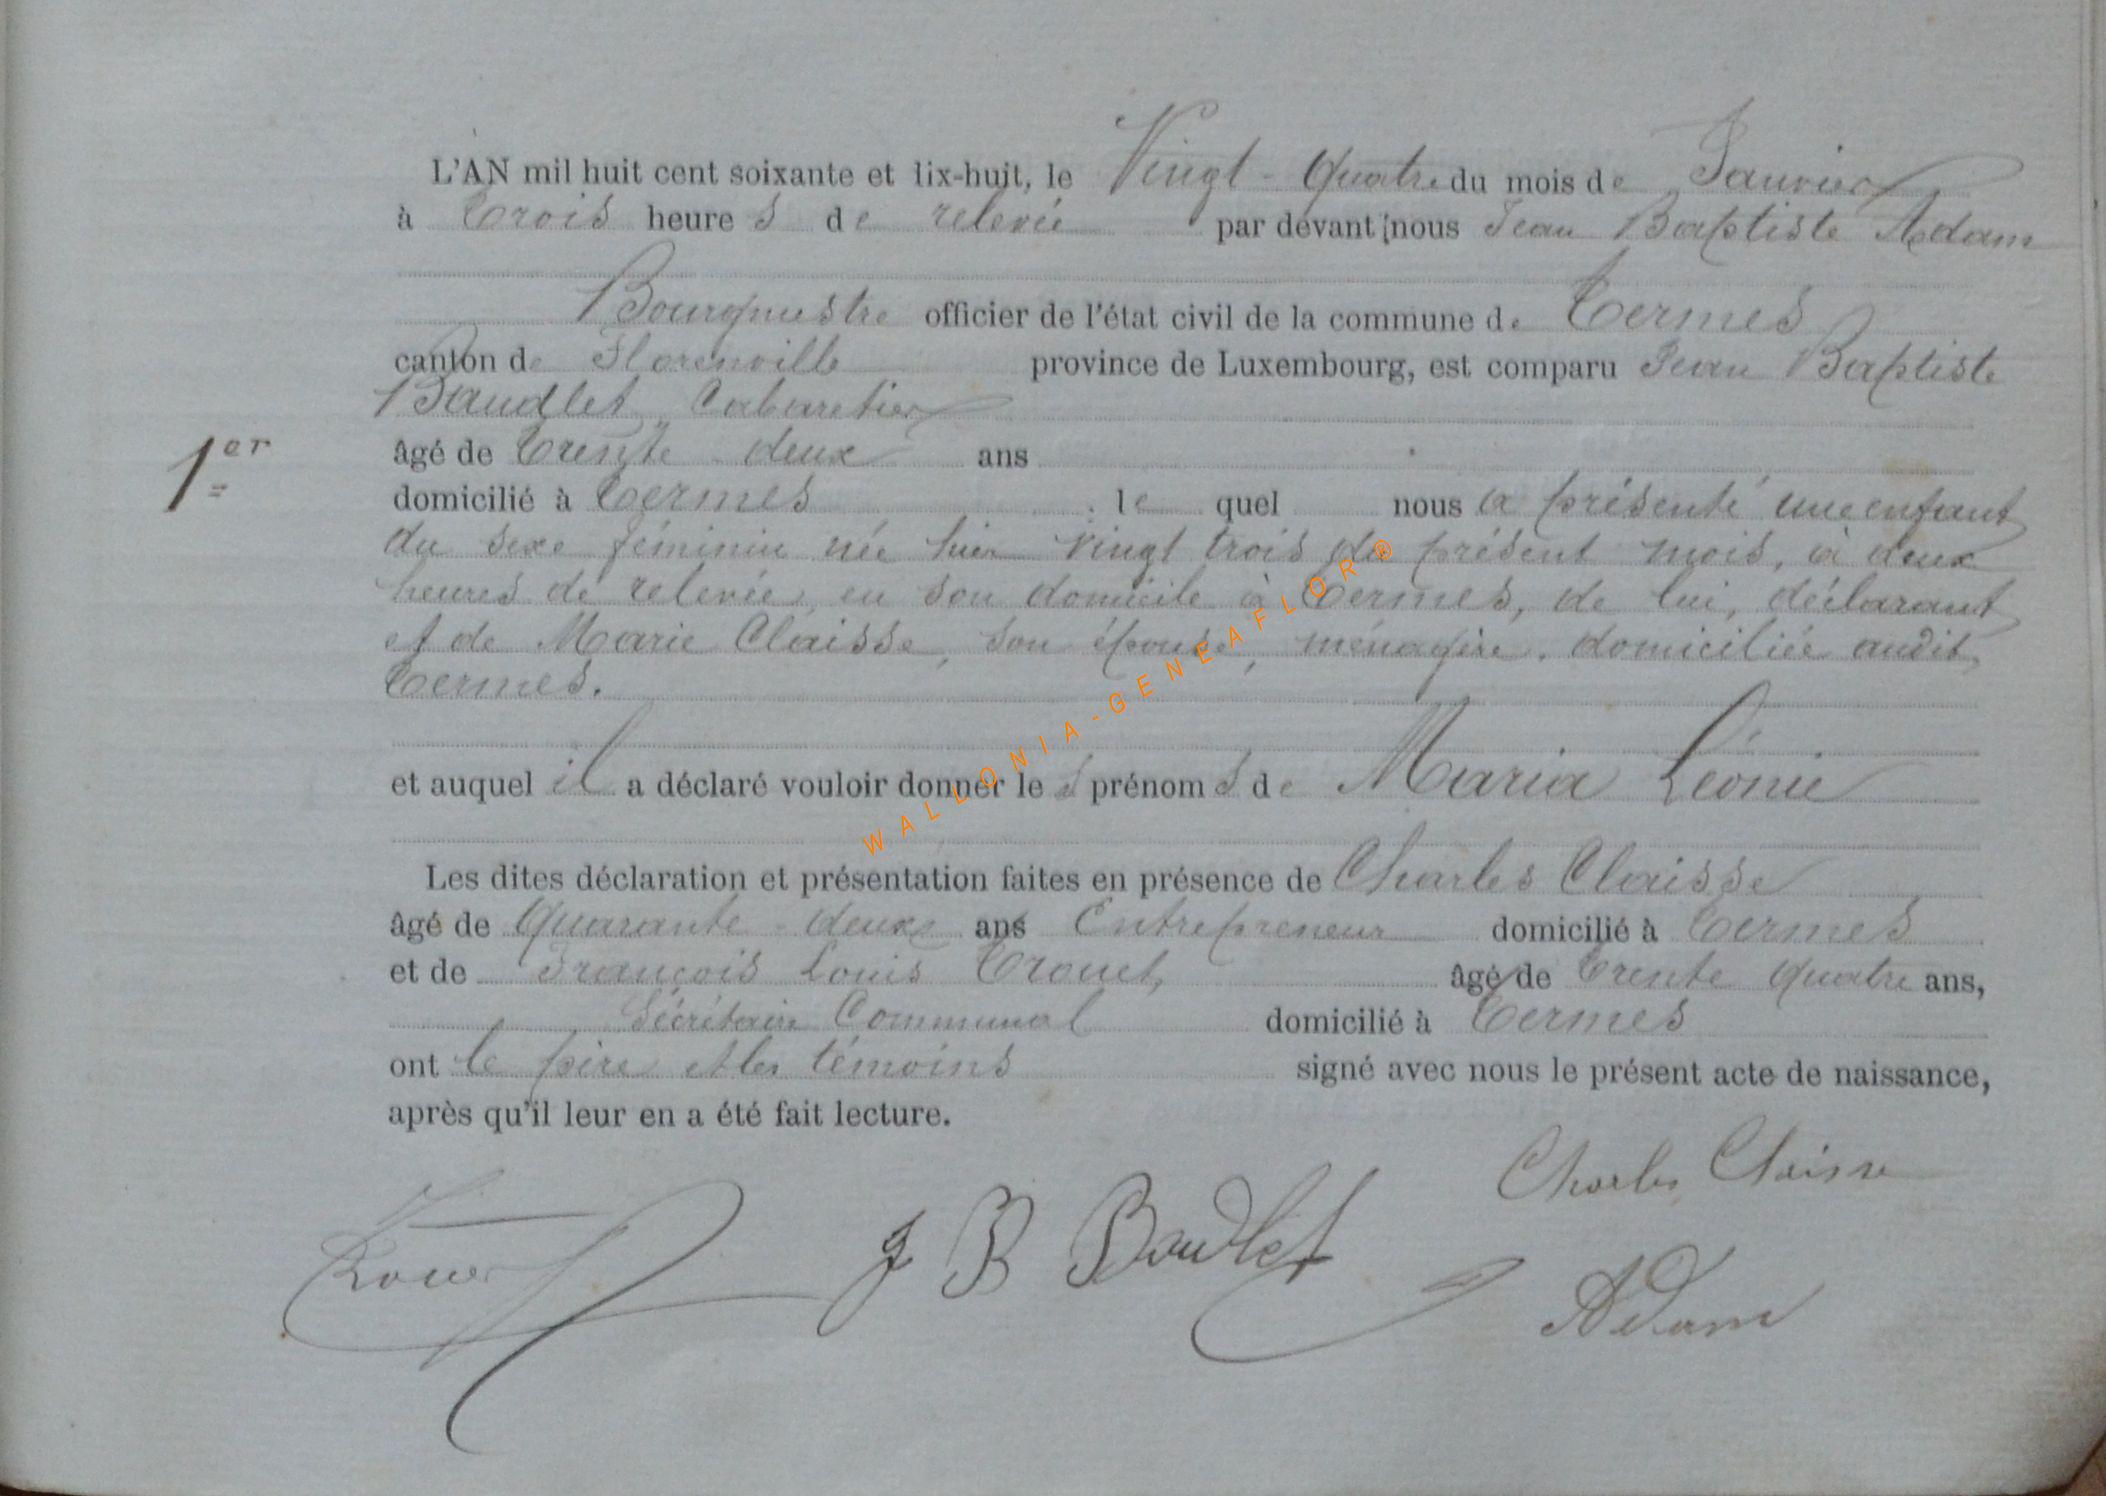 L'AN mil huit cent soixante et dix-huit, le Vingt-Quatre du mois de Janvier
à Trois heures de relevée par devant nous Jean Baptiste Adam
Bourgmestre officier de l'état civil de la commune de Termes
canton de Florenville province de Luxembourg, est comparu Jean Baptiste
Baudlet, Cabaretier
1er
âgé de Trente deux ans
domicilié à Termes, lequel nous a présenté une enfant
du sexe féminin née hier vingt trois du présent mois, à deux
heures de relevée, en son domicile à Termes, de lui, déclarant
et de Marie Claisse, son épouse, ménagère, domiciliée audit
Termes.
et auquel il a déclaré vouloir donner les prénoms de Maria Léonie
Les dites déclaration et présentation faites en présence de Charles Claisse
âgé de Quarante-deux ans Entrepreneur domicilié à Termes
et de François Louis Trouet, âgé de Trente Quatre ans,
Sécrétaire Communal domicilié à Termes
ont le père et les témoins signé avec nous le présent acte de naissance,
après qu'il leur en a été fait lecture.
Charles Claisse
J B Baudlet
Adam
WALLONIA-GENEAFLOR®